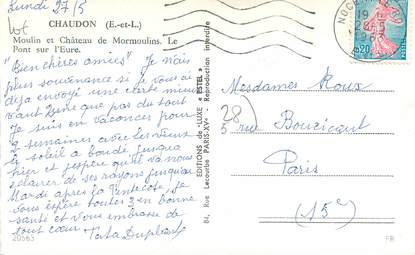 Lundi 27/5
CHAUDON (E.-et-L.)
Moulin et Château de Mormoulins. Le
Pont sur l'Eure.
"Bien chères amies" Je n'ais
plus souvenance si je vous ai
deja envoyé une carte mieux
vaut une que pas du tout
Je suis en vacances pour
semaines avec les vieux
le soleil a boudé jusqu'a
hier et j'espère qu'il va nous
éclairer de ses rayons jusqu'au
Mardi après la Pentecôte, je
vous espère toutes 2 en bonne
santé et vous embrasse de
tout cœur. Tata
20563
EDITIONS de «LUXE "ESTEL"
84, Rue Lecourbe PARIS-XVe - Reproduction interdite
0,20
Mesdames Roux
28
5 rue Boucicaut
Paris
(15e)
FR